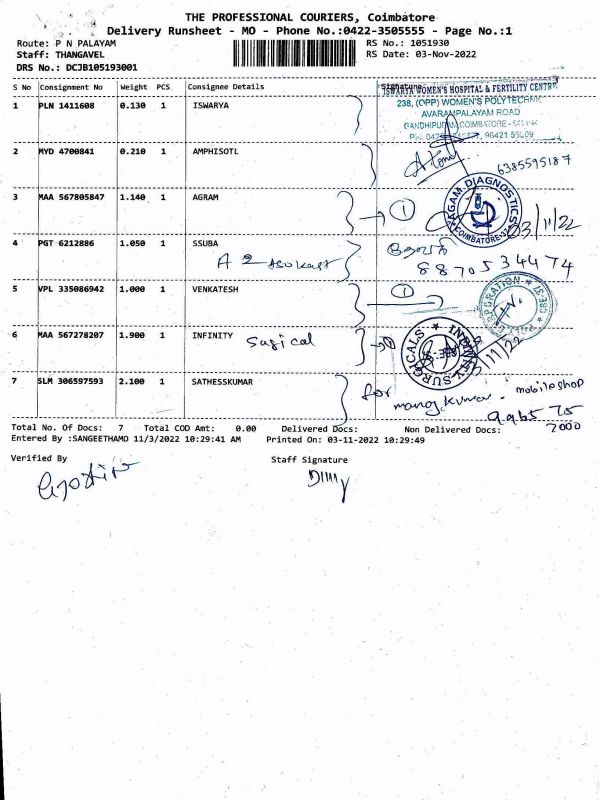 THE PROFESSIONAL COURIERS, Coimbatore
Delivery Runsheet - MO - Phone No.:0422-3505555 - Page No.:1
Route: P N PALAYAM RS No.: 1051930
Staff: THANGAVEL RS Date: 03-Nov-2022
DRS No.: DCJB105193001
S No Consignment No Weight PCS Consignee Details Signature
1 PLN 1411608 0.130 1 ISWARYA
ISWARYA WOMEN'S HOSPITAL & FERTILITY CENTRE
238, (OPP) WOMEN'S POLYTECHNIC
AVARAMPALAYAM ROAD
2 MYD 4700841 0.210 1 AMPHISOTL
6385595187
3 MAA 567805847 1.140 1 AGRAM
1
AGAM DIAGNOSTICS
COIMBATORE
03/11/22
4 PGT 6212886 1.050 1 SSUBA
8870534474
5 VPL 335086942 1.000 1 VENKATESH
1
6 MAA 567278207 1.900 1 INFINITY
INFINITY SURGICALS
7 SLM 306597593 2.100 1 SATHESSKUMAR
for
manoj kumar - mobile shop
Total No. Of Docs: 7 Total COD Amt: 0.00 Delivered Docs: Non Delivered Docs:
Entered By :SANGEETHAMO 11/3/2022 10:29:41 AM Printed On: 03-11-2022 10:29:49
Verified By Staff Signature